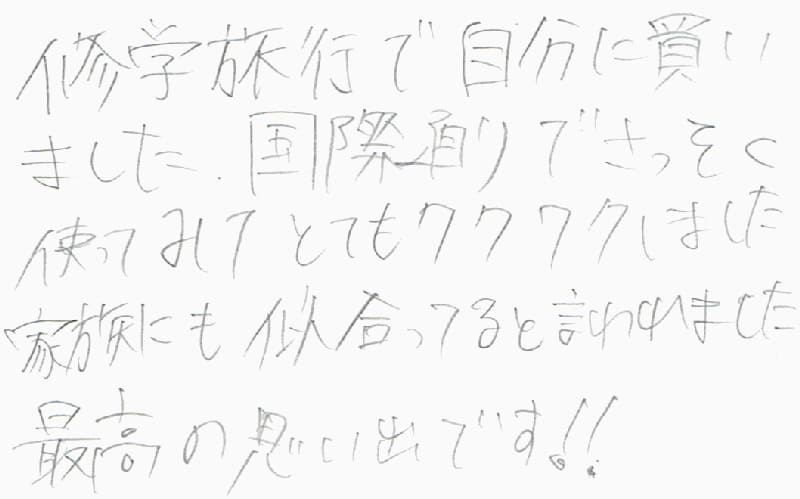 修学旅行で自分に買い
ました.国際通りでさっそく
使ってみてとてもワクワクしました
家族にも似合ってると言われました
最高の思い出です!!